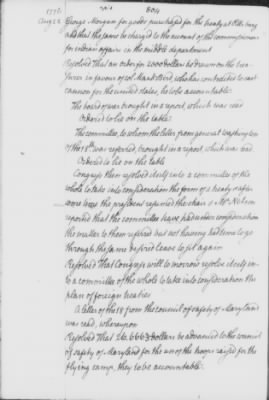 1776
Aug 22
George Morgan for goods purchased for the treaty at Pittsburg
and that the same be charged to the account of the commissioners
for indian affairs in the middle department
Resolved That an order for 2000 dollars be drawn on the trea-
surer in favour of col. who has contracted to cast
cannon for the united states, he to be accountable
The board of war brought in a report, which was read
Ordered to lie on the table
The committee, to whom the letter from general washington
of the 18th was referred, brought in a report, which was read.
Ordered to lie on the table
Congress then resolved itself into a committee of the
whole to take into consideration the form of a treaty &
the president resumed the chair & Mr. Nelson
reported that the committee have had under consideration
the matter to them referred but not having had time to go
through the same desired leave to sit again
Resolved That Congress will to morrow resolve itself in-
to a committee of the whole to take into consideration the
plan of foreign treaties
A letter of the 18 from the council of safety of Maryland
was read, whereupon
Resolved That dollars be advanced to the council
of safety of Maryland for the use of the troops raised for the
flying camp, they to be accountable.